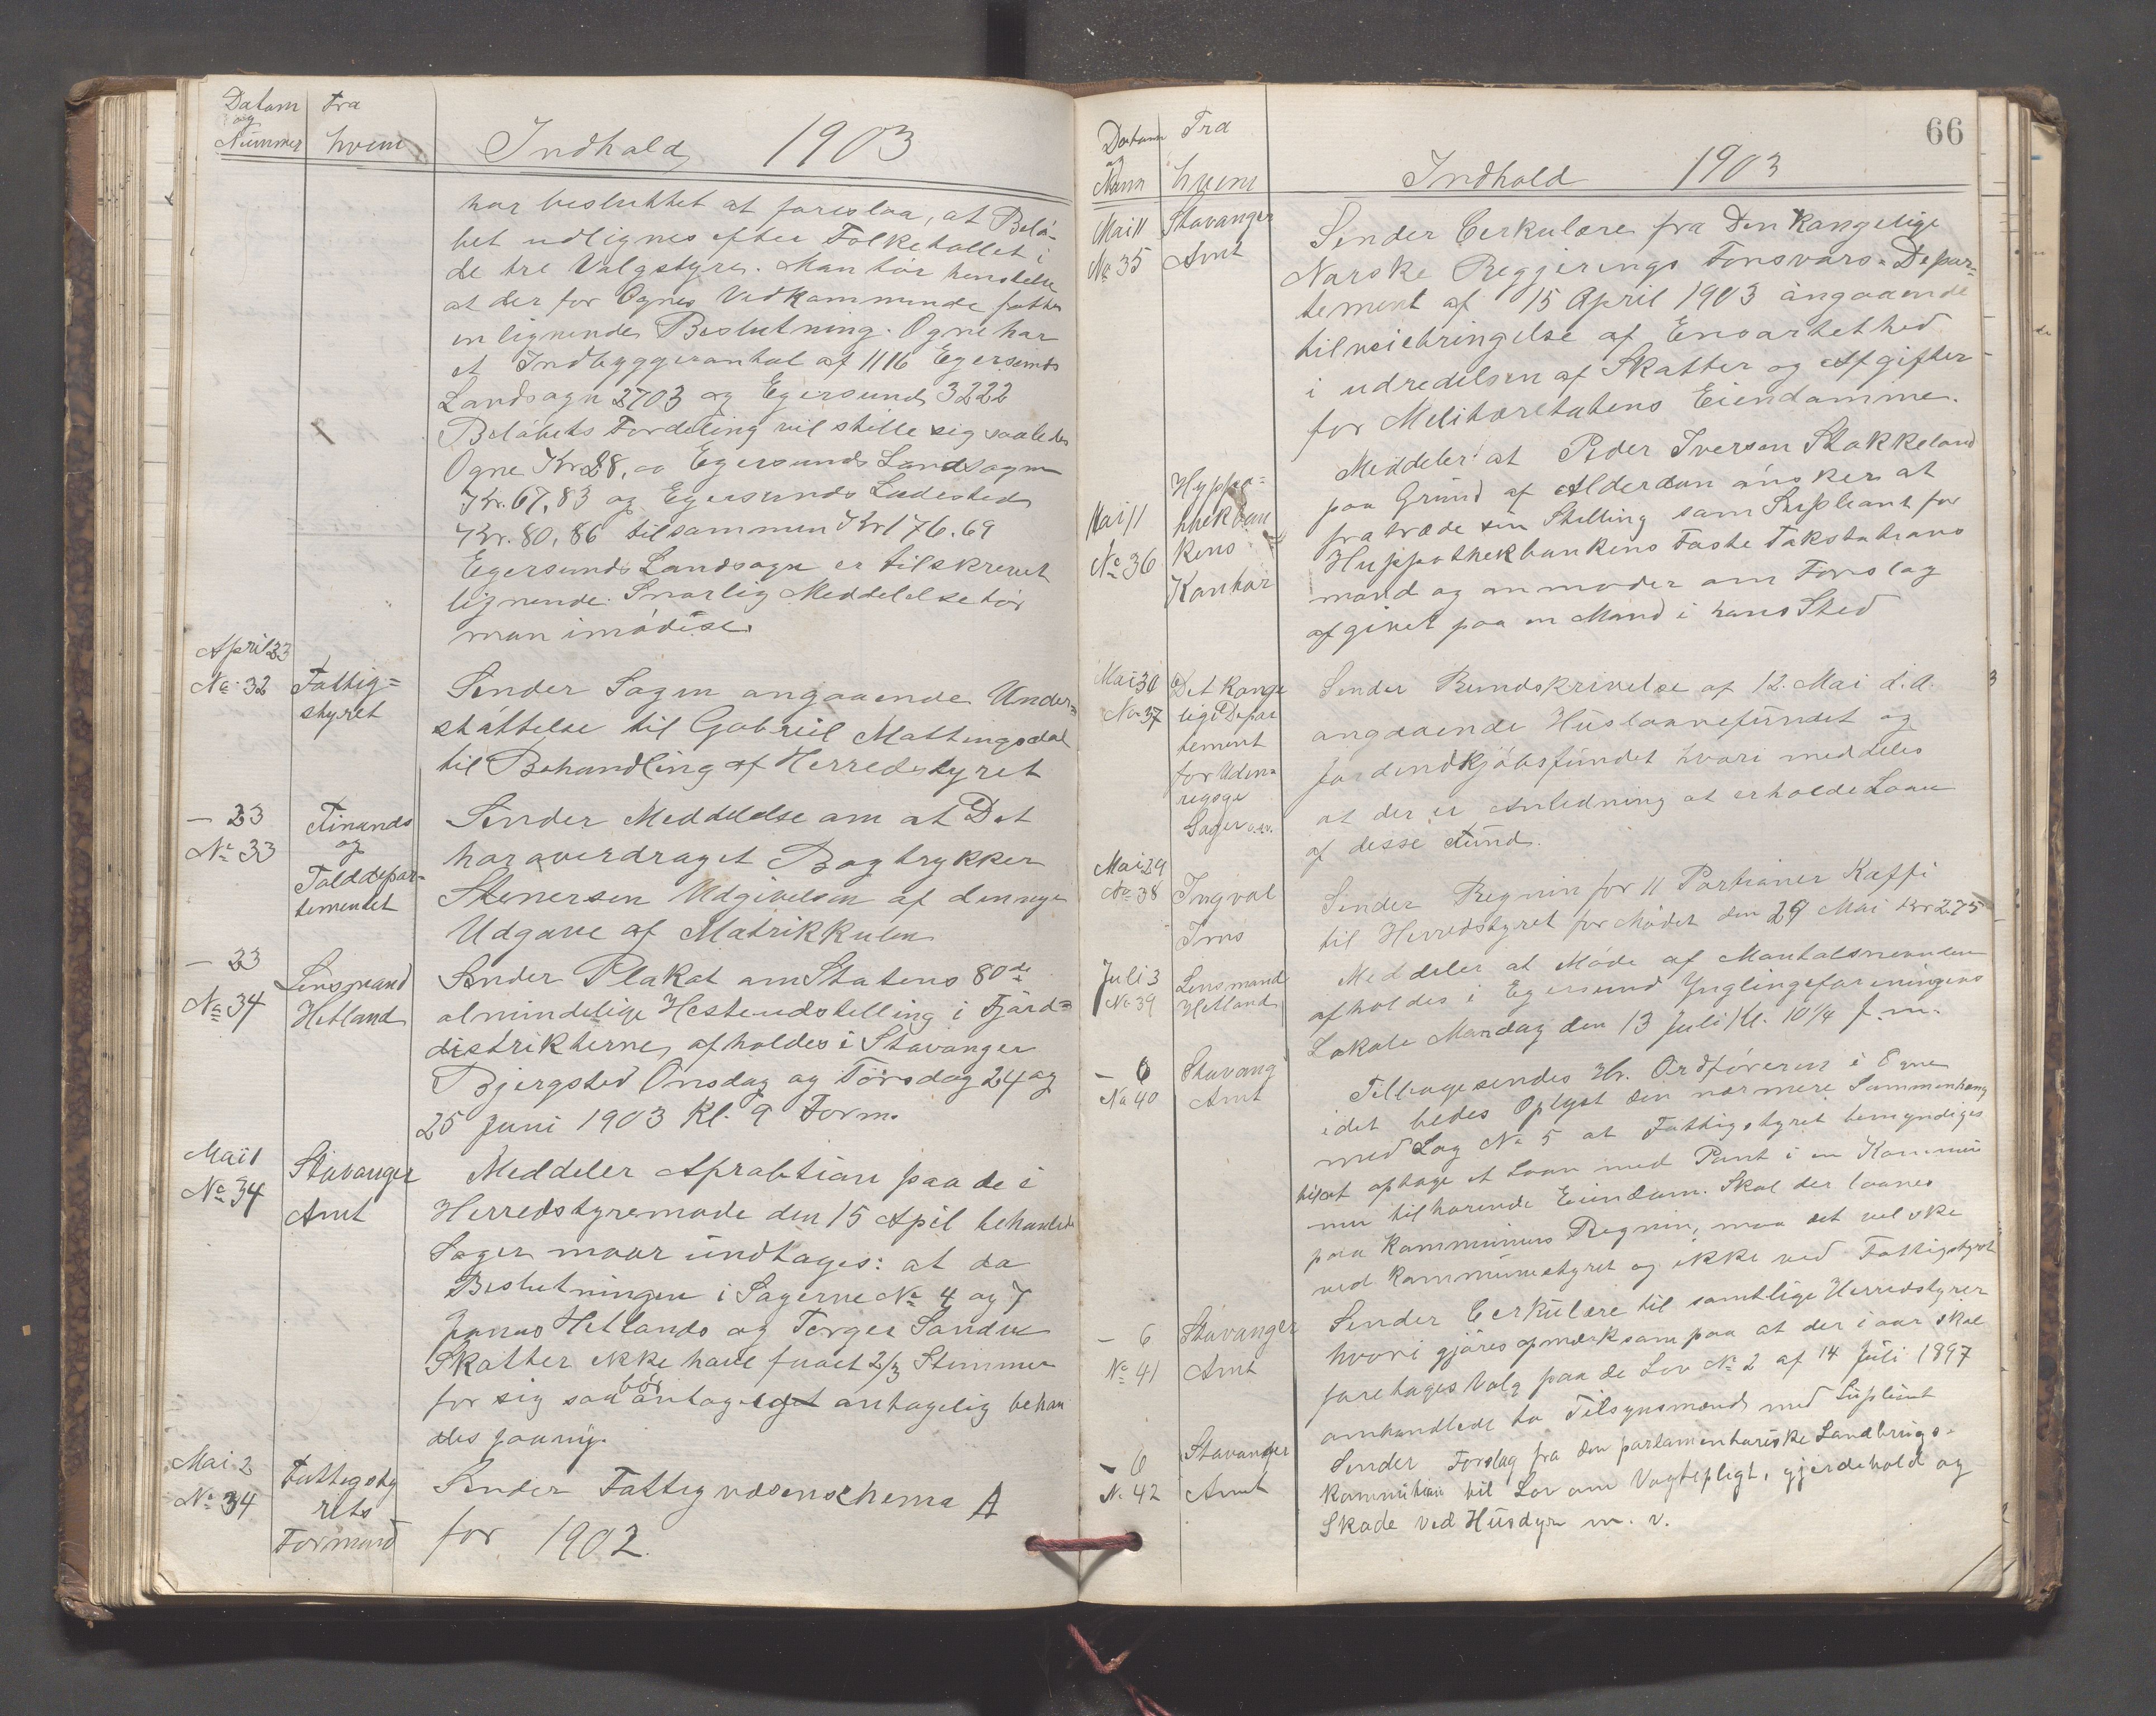 Datum Fra
og
Nummer hvem Indhold 1903
har besluttet at foreslaa, at Belö-
bet udlignes efter Folketallet i
de tre Valgstyre. Man tör henstelle
at der for Ognes Vedkommende fattes
en lignende Beslutning. Ogne har
et Indbyggerantal af 1116 Egersunds
Landsogn 2703 og Egersund 3222
Belöbets Fordeling vil stille sig saaledes
Ogne Kr 28,00 Egersunds Landsogn
Kr. 67,83 og Egersunds Ladested
Kr. 80,86 tilsammen Kr 176.69
Egersunds Landsogn er tilskrevet
lignende. Snarlig Meddelelse tör
man imödese.
April 23
No 32 Fattig=
styret
Sender Sagen angaaende Under=
stöttelse til Gabriel Mattingsdal
til Behandling af Herredstyret
- 23
No 33
Finands
og
Tolddepar-
tementet
Sender Meddelelse om at Det
har overdraget Bogtrykker
Stenersen Udgivelsen af den nye
Udgave af Matrikkulen
- 23
No 34
Lensmand
Hetland
Sender Plakat om Statens 80de
almindelige Hesteudstelling i Fjörd=
distrikterne, afholdes i Stavanger
Bjergsted Onsdag og Torsdag 24 og
25 Juni 1903 Kl. 9 Form.
Mai 1
No 34
Stavanger
Amt
Meddeler Aprobtion paa de i
Herredstyremøde den 15 Apil behandlede
Sager maar undtages: at da
Beslutningen i Sagerne No 4 og 7
Jonas Hetlands og Torger Sandve
Skatter ikke have faaet 2/3 Stimmer
for sig saa bör antageget antagelig behan
dles paany.
Mai 2
No 34
Fattigsty
rets
Formand
Sender Fattigvæsenschema A
for 1902.
66
Datum Fra
og
Num hvem Indhold 1903
Mai 11
No 35
Stavanger
Amt
Sender Cerkulære fra Den Kongelige
Norske Regjerings Forsvars-Depar=
tement af 15 April 1903 angaaende
tilveiebringelse af Ensartethed
i udredelsen af Skatter og Afgifter
for Melitæretatens Eiendomme.
Mai 11
No 36
Hyppo=
thekban
kens
Kontor
Meddeler at Peder Iversen Stokkeland
paa Grund af Alderdom önsker at
fratræde sin Stelling som Supleant for
Huppothekbankens Faste Takstations
mand og anmoder om Forslag
afgivet paa en Mand i hans Sted
Mai 30
No 37
Det konge
lige Depar
tement
for Uden=
rigsge
Sager o.s.v.
Sender Rundskrivelse af 12. Mai d.A.
angaaende Huslaanefundet og
Jordindkjøbsfundet hvori meddeles
at der er Anledning at erholde Laan
af disse Fund.
Mai 29
No 38 Ingval
Tms
Sender Regnin for 11 Portioner Kaffi
til Herredstyret for Mödet den 29 Mai Kr 275
Juli 3
No 39
Lensmand
Hetland
Meddeler at Möde af Mantalsnevnden
afholdes i Egersund Ynglingeforeningens
Lokale Mandag den 13 Juli Kl. 10 1/4 f.m.
- 6
No 40
Stavang
Amt
Tilbagesendes Hr. Ordföreren i Ogne
idet bedes Oplyst den nærmere Sammenhæng
med Sag No 5 at Fattigstyret bemyndiges
til at optage et Laan med Pant i en Kommu
nen tilhørende Eiendom. Skal der laanes
paa Kommunens Regnin, maa det vel ske
ved Kommunestyret og ikke ved Fattigstyret
- 6
No 41
Stavanger
Amt
Sender Cerkulære til samtlige Herredstyrer
hvori gjöres opmærksom paa at der i aar skal
foretages Valg paa de Lov No 2 af 14 Juli 1897
omhandlede to Tilsynsmænd med Suplient
- 6
No 42
Stavanger
Amt
Sender Forslag fra den parlamentariske Landbrugs-
kommition til Lov om Vogtepligt, gjerdehold og
Skade ved Husdyr m. v.